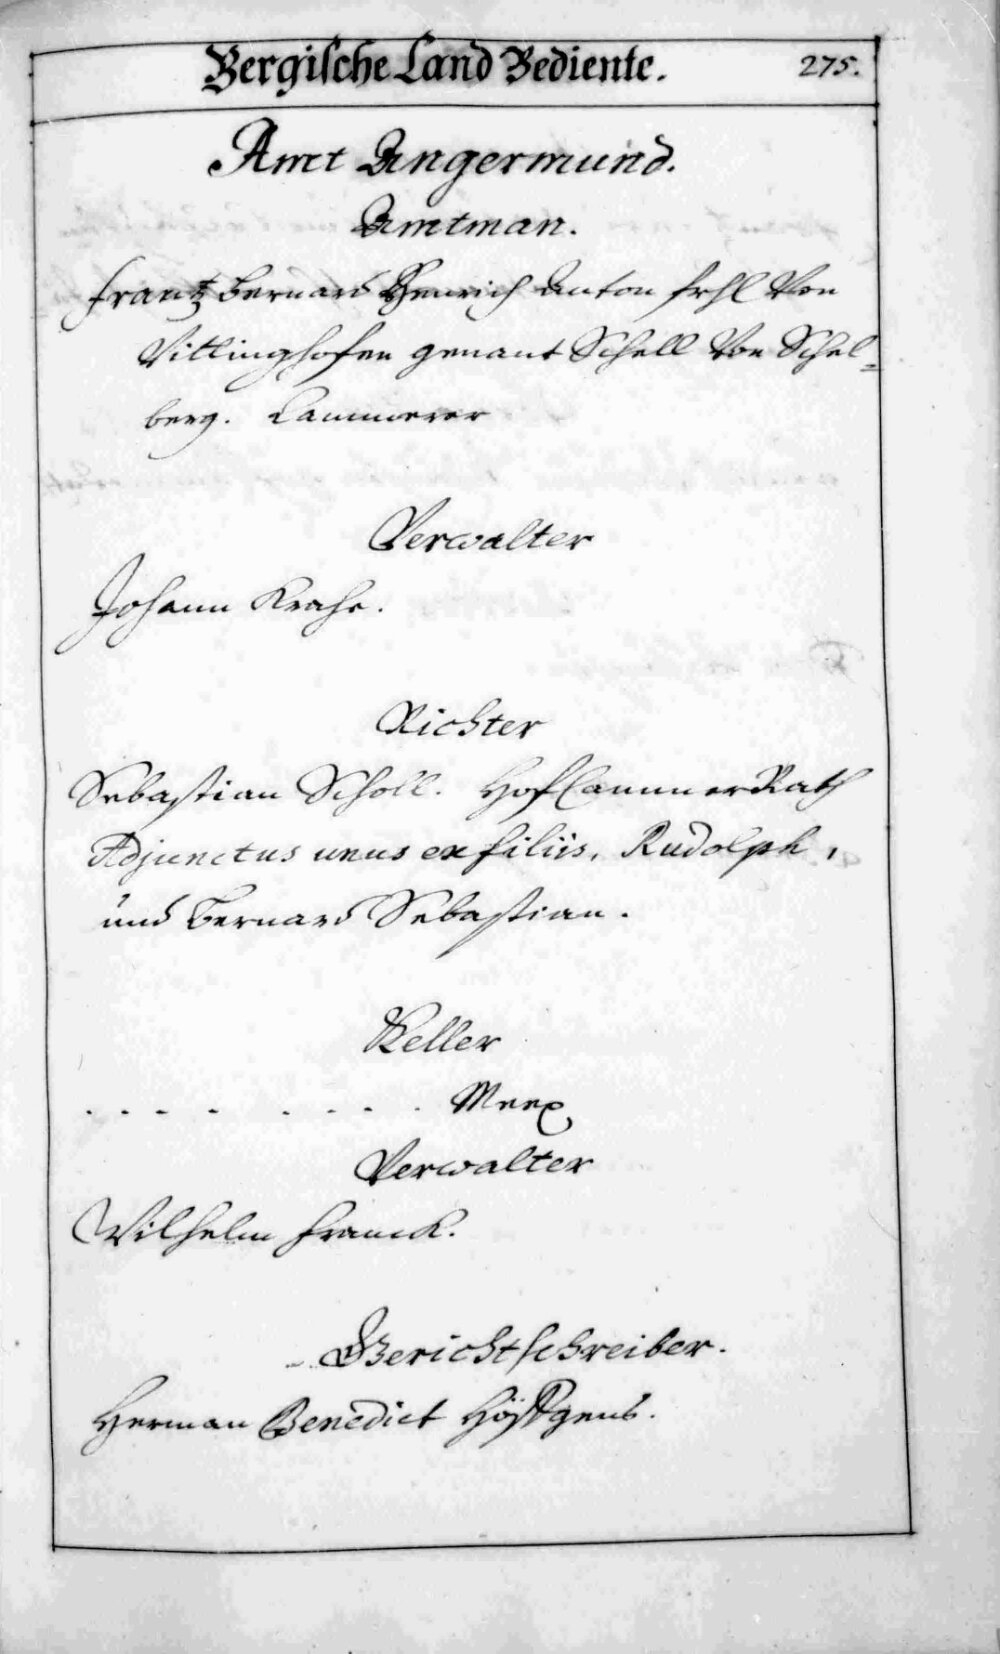 Bergische Land Bediente. 275.
Amt Angermund.
Amtman.
Frantz Bernard Henrich Anton frhl Von
Vittinghofen genant Schell Von Schel=
berg. Cammerer
Verwalter
Johann Krahe.
Richter
Sebastian Scholl. HofCammerRath
Adjunctus unus ex filiis, Rudolph,
und Bernard Sebastian.
Keller
. . . . . . . . Merx
Verwalter
Wilhelm Franck.
Gerichtschreiber.
Herman Benedict